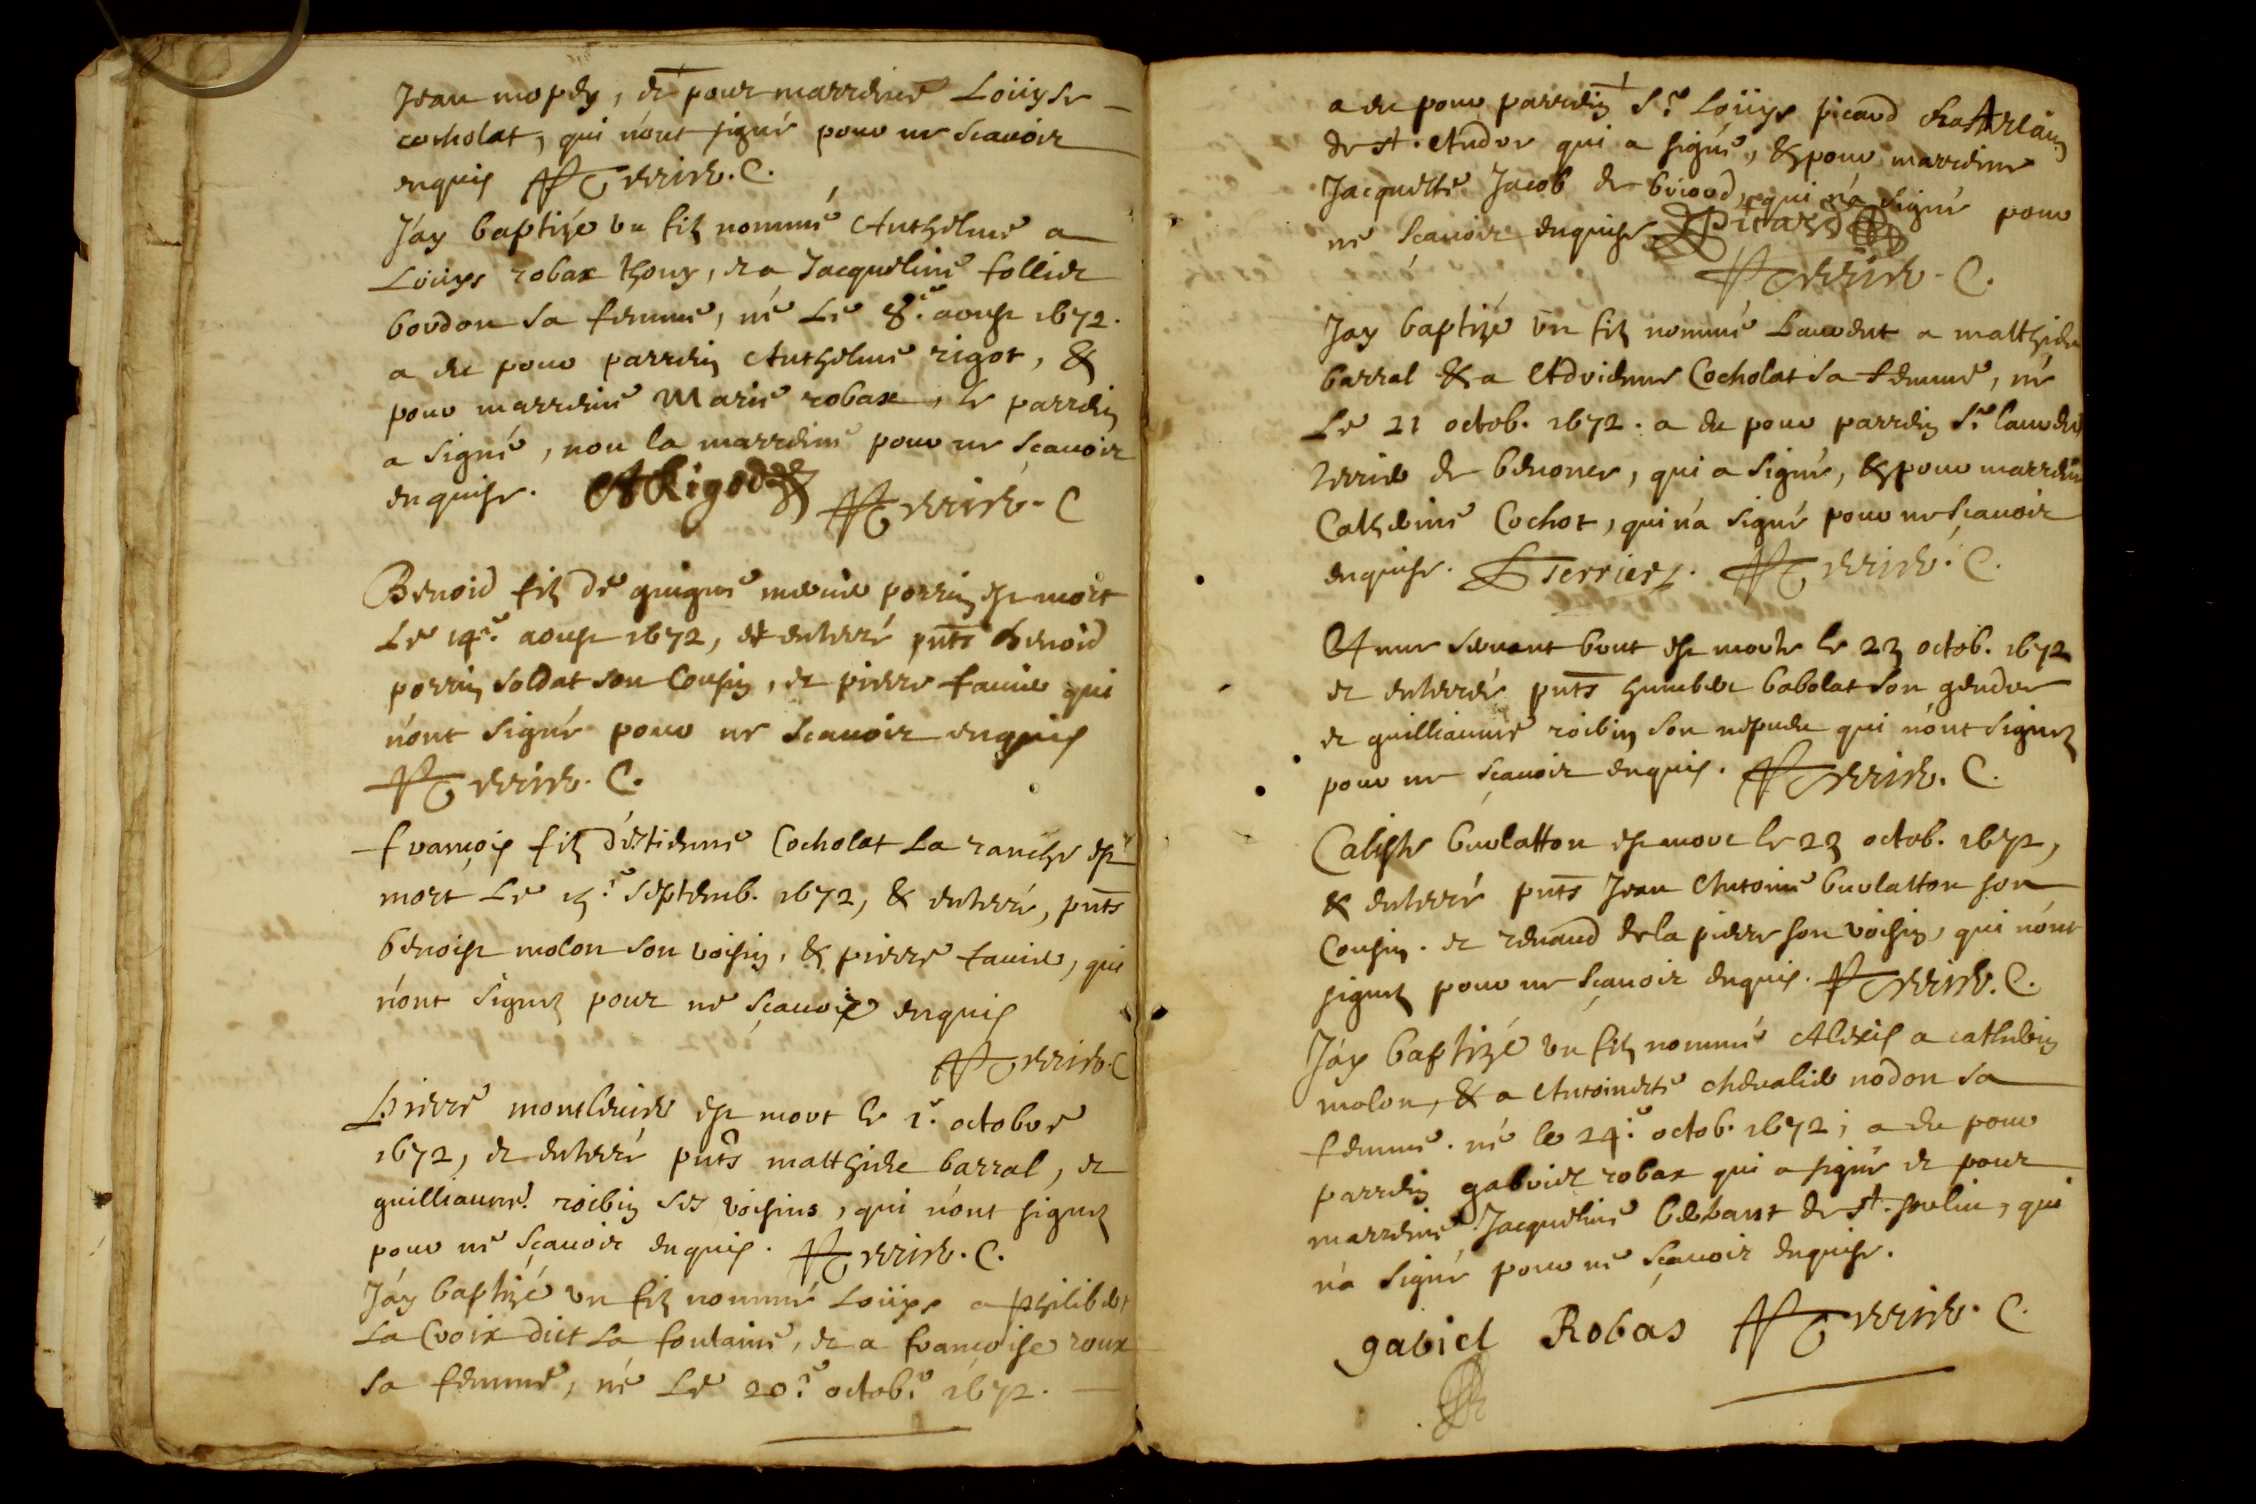 Jean mopey, et pour marreine Loüyse
cocholat, qui n'ont signé pour ne scauoir
enquis Terrier. C.
J'ay baptizé vn filz nommé Anthelme a
Loüys robax thony, et a Jacqueline follier
bordon sa femme, né Le 8.e aoust 1672.
a eu pour parrein Anthelme rigot, &
pour marreine Marie robax, le parrein
a signé, non la marreine pour ne sçauoir
enquise. A Rigod Terrier. C
Benoid filz de guigue perrin est mort
Le 14.e aoust 1672, et enterré pnts Benoid
perrin soldat son Cousin, et pierre fauier qui
n'ont signé pour ne scauoir enquis
Terrier. C.
francois filz d'etienne Cocholat La ranche est
mort Le .e septemb. 1672, & enterré, pnts
benoist molon son voisin, & pierre fauier, qui
n'ont signez pour ne sçauoir enquis
Terrier. C
Pierre est mort le 1.e octobre
1672, et enterré pnts matthieu barral, et
guilliaume roibin ses voisins, qui n'ont signez
pour ne sçauoir enquis. Terrier. C.
J'ay baptizé vn filz nommé Loüys a philibert
La Croix dict La fontaine, et a françoise roux
sa femme, né Le 20.e octob.e 1672.
a eu pour parrein S.r Loüys picard chastelain
de st. Andre qui a signé, & pour marreine
Jacquette Jacob de briord, qui n'a signé pour
ne sçauoir enquise Picard
Terrier. C.
J'ay baptizé vn filz nommé Laurent a matthieu
barral & a Adrienne Cocholat sa femme, né
Le 21 octob. 1672. a eu pour parrein S.r laurent
terrier de benonce, qui a signé, & pour marreine
Catherine Cochot, qui n'a signé pour ne sçauoir
enquise. L Terrier. Terrier. C.
Anne seruant bout est morte le 23 octob. 1672
et enterrée pnts humbert babolat son gendre
et guilliaume roibin son nepueu qui n'ont signez
pour ne sçauoir enquis. Terrier. C.
Caliste burlatton est mort le 23 octob. 1672,
& enterré pnts Jean Antoine burlatton son
Cousin. et renaud de la pierre son voisin, qui n'ont
signez pour ne sçauoir enquis. Terrier. C.
J'ay baptizé vn filz nommé Alexis a cathelin
molon, & a Antoinette cheualier nodon sa
femme. né le 24.e octob. 1672; a eu pour
parrein gabriel robax qui a signé et pour
marreine Jacqueline de st. , qui
n'a signé pour ne sçauoir enquise.
gabiel Robas Terrier. C.